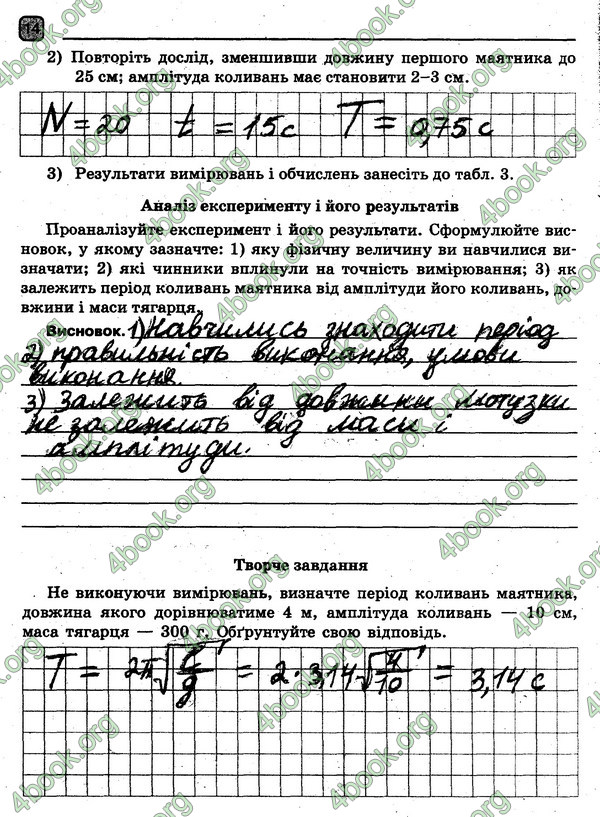 14
2) Повторіть дослід, зменшивши довжину першого маятника до
25 см; амплітуда коливань має становити 2–3 см.
N = 20 t = 15 с T = 0,75 с
3) Результати вимірювань і обчислень занесіть до табл. 3.
Аналіз експерименту і його результатів
Проаналізуйте експеримент і його результати. Сформулюйте вис-
новок, у якому зазначте: 1) яку фізичну величину ви навчилися ви-
значати; 2) які чинники вплинули на точність вимірювання; 3) як
залежить період коливань маятника від амплітуди його коливань, до-
вжини і маси тягарця.
Висновок. 1) Навчились знаходити період
2) правильність виконання, умови
виконання.
3) Залежить від довжини мотузки
не залежить від маси і
амплітуди.
Творче завдання
Не виконуючи вимірювань, визначте період коливань маятника,
довжина якого дорівнюватиме 4 м, амплітуда коливань — 10 см,
маса тягарця — 300 г. Обґрунтуйте свою відповідь.
T = 2π√(l/g) = 2·3,14√(4/10) = 3,14 с
4book.org